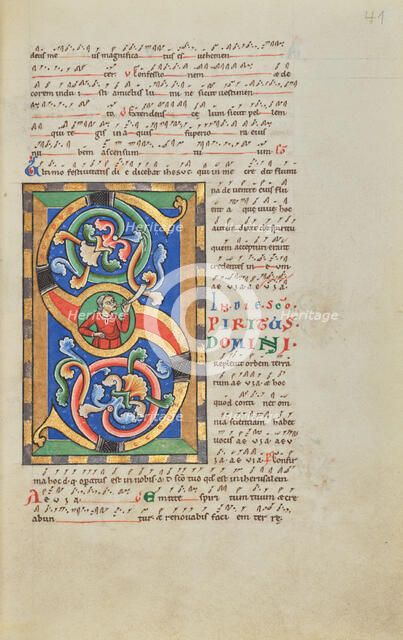 41
deus me us magnificatus es vehemen
ter ℣ Confessio nem & de
corem indu isti amictus lu mi ne sicut vestimen
to ℣ Extendens ce lum sicut pellem
qui te gis in aquis superiora eius
nu bem ascensum tu um
Ultimo festivitatis die dicebat ihesus qui in me cre dit flumi
na de ventre eius flu
ent a que vive hoc
autem dixit de spiritu
quem accepturi erant
credentes in e um
a e v ia a e v ia
IN DIE SCO
PIRITUS
DOMINI
Replevit orbem terra
rum a e v ia & hoc
quod conti net om
nia scientiam habet
vocis a e v ia a e v
ia a e v ia Confir
ma hoc deus quod operatus est in nobis a templo sancto tuo quod est in iherusalem
A e v ia Emitte spiri tum tuum & cre
abun tur & renovabis faci em ter re
Heritage
Images